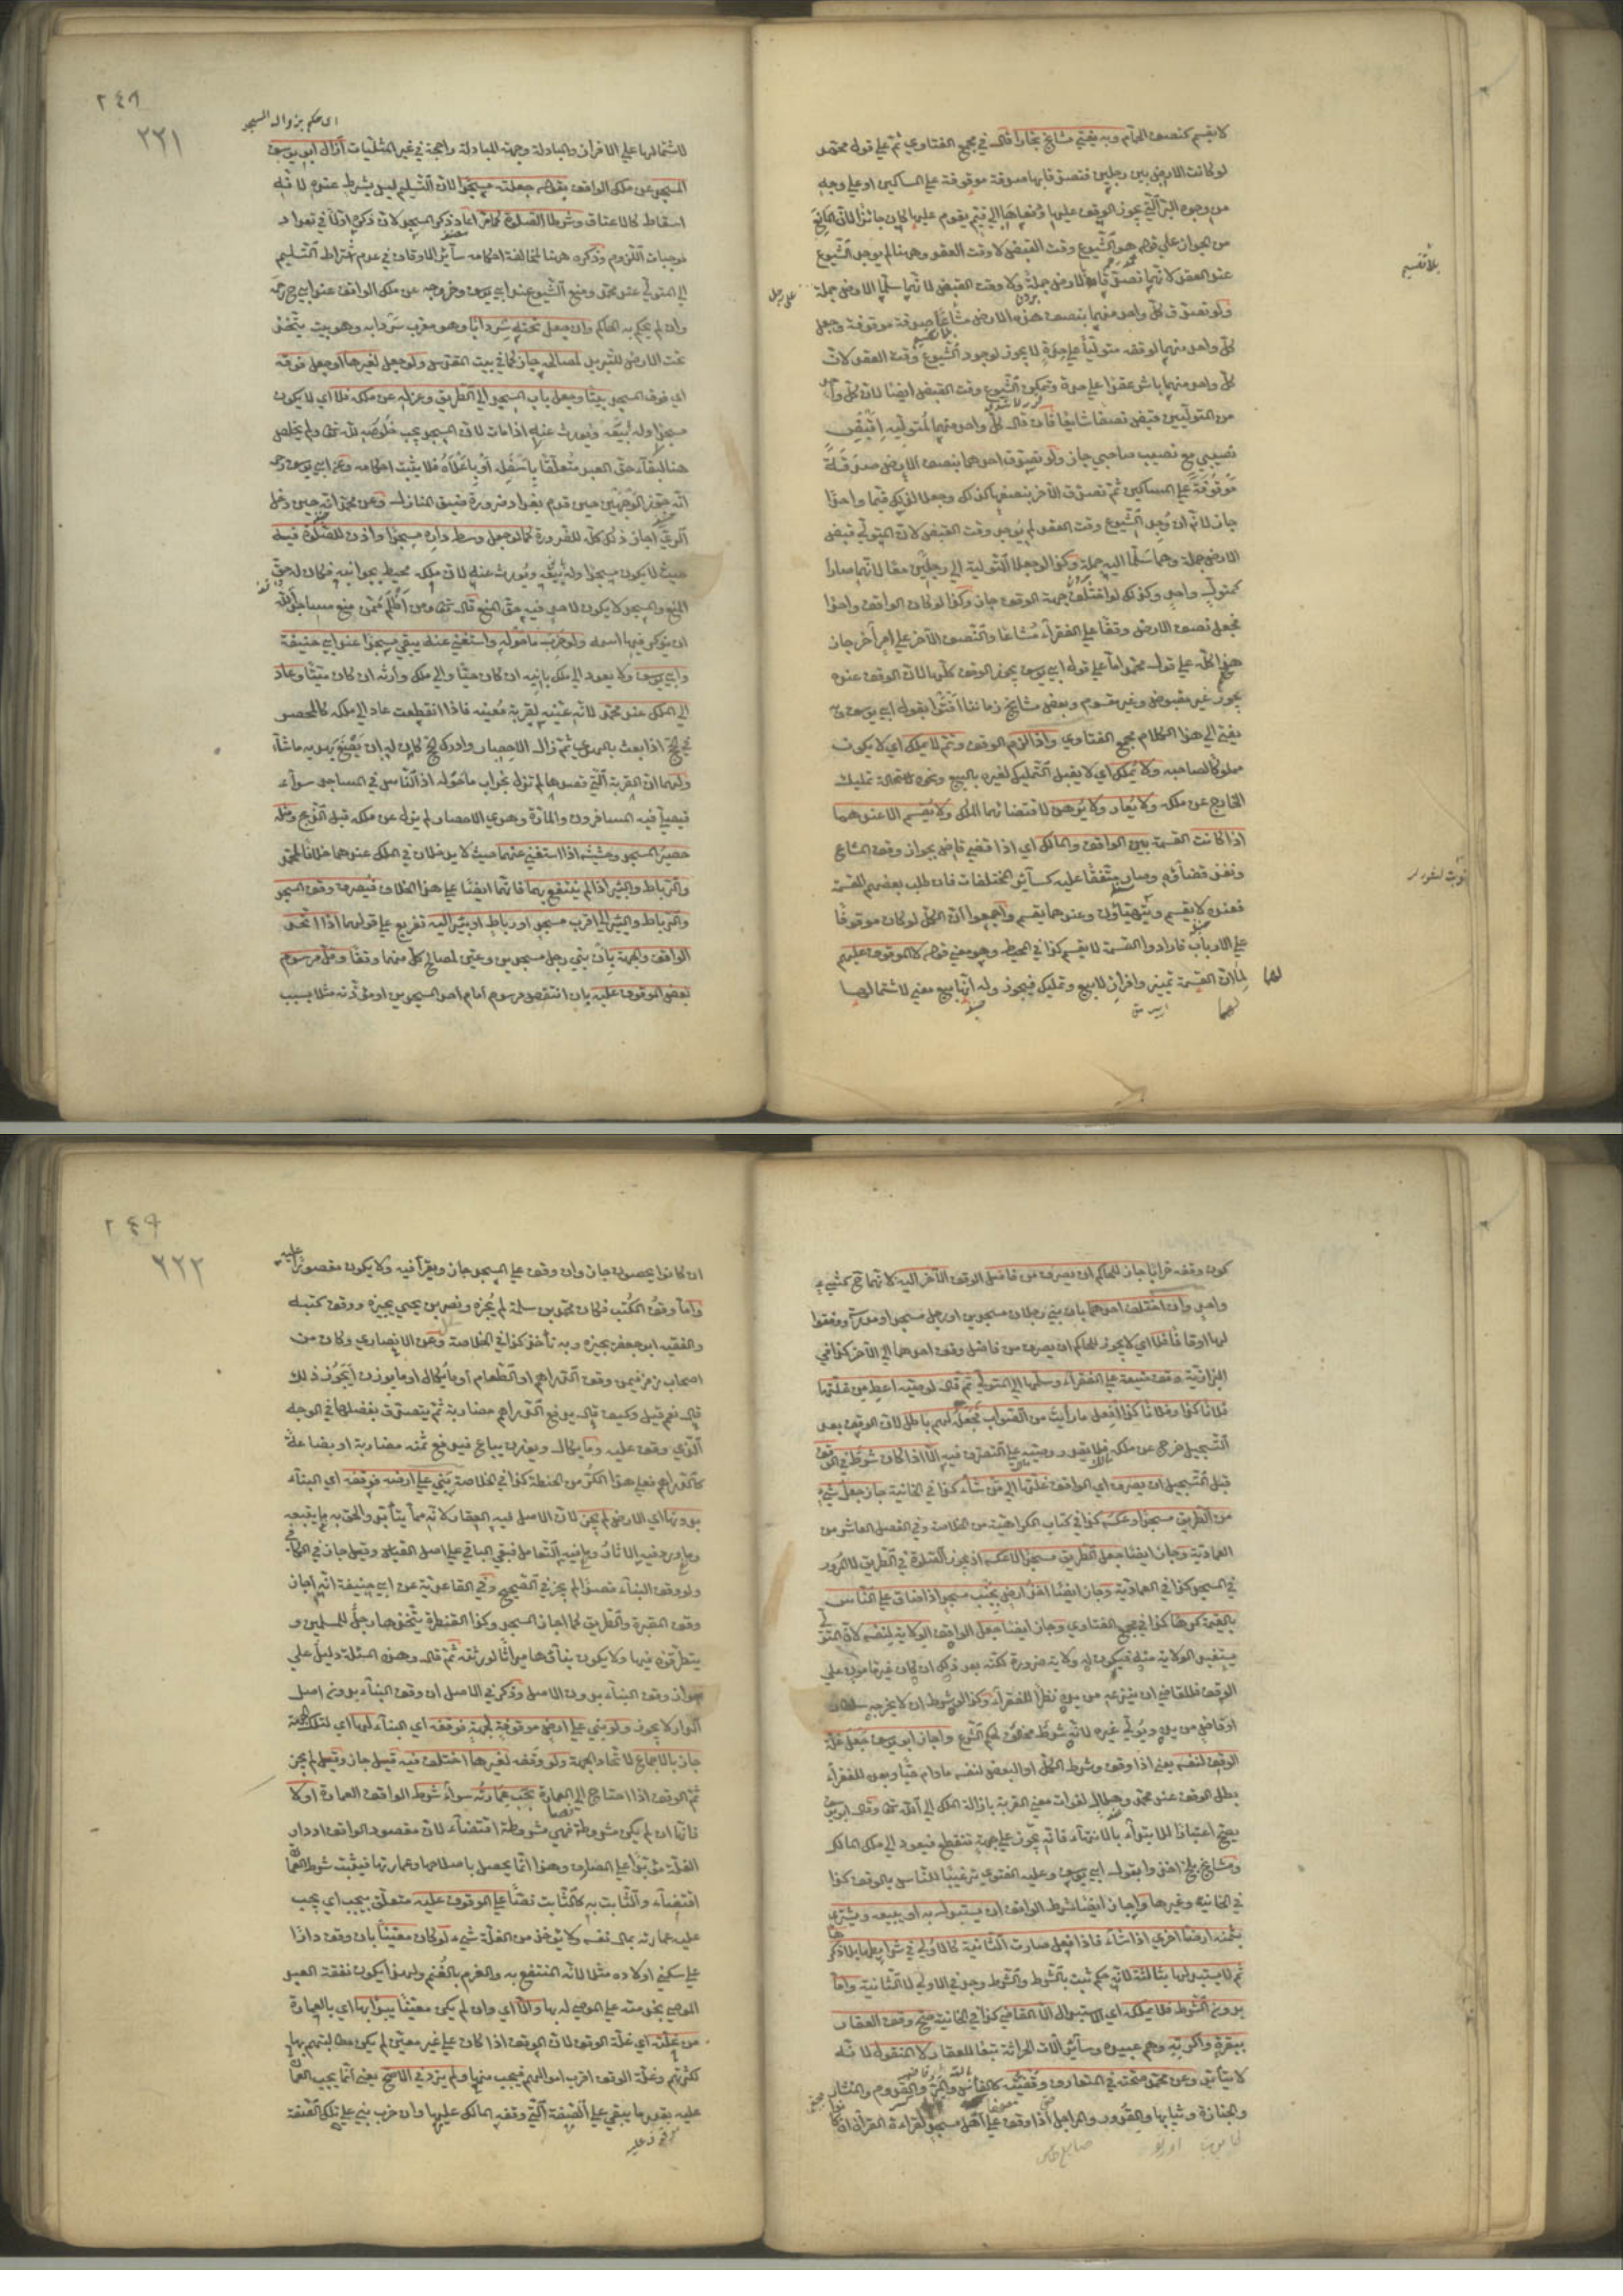 لا يقسم كنصف الحمام وبه يفتي مشايخ بخارا قال في مجمع الفتاوي ثم على قول محمد
لو كانت الارض بين رجلين فتصدقا بها صدقة موقوفة على المساكين او على وجه
من وجوه البر التي يجوز الوقف عليها ودفعاها الى قيم يقوم عليها كان جائزا لان المانع
من الجواز على قول محمد هو الشيوع وقت القبض لا وقت العقد وههنا لم يوجد الشيوع
عند العقد لانهما تصدقا بالارض جملة ولا وقت القبض لانهما سلما الارض جملة
ولو تصدق كل واحد منهما بنصف هذه الارض مشاعا صدقة موقوفة وجعل
كل واحد منهما لوقفه متوليا على حدة لا يجوز لوجود الشيوع وقت العقد لان
كل واحد منهما باشر عقدا على حدة وتمكن الشيوع وقت القبض ايضا لان كل واحد
من المتوليين قبض نصفا شايعا فان قال كل واحد منهما لمتوليه اقبض
نصيبي مع نصيب صاحبي جاز ولو تصدق احدهما بنصف الارض صدقة
موقوفة على المساكين ثم تصدق الآخر بنصفها كذلك وجعلا لذلك قيما واحدا
جاز لانه ان وجد الشيوع وقت العقد لم يوجد وقت القبض لان المتولي قبض
الارض جملة وهما سلما اليه جملة وكذا لو جعلا التولية الى رجلين معا لانهما صارا
كمتول واحد وكذلك لو اختلف جهة الوقف جاز وكذا لو كان الواقف واحدا
فجعل نصف الارض وقفا على الفقراء مشاعا والنصف الآخر على امر آخر جاز
هذا كله على قول محمد اما على قول ابي يوسف يجوز الوقف كلها لان الوقف عنده
يجوز غير مقبوض وغير مقسوم وبعض مشايخ زماننا افتوا بقول ابي يوسف وبه
يفتي الى هنا كلام مجمع الفتاوي واذا لزم الوقف وتم لا يملك اي لا يكون
مملوكا لصاحبه ولا يملك اي لا يقبل التمليك لغيره بالبيع ونحوه لاستحالة تمليك
الخارج عن ملكه ولا يعار ولا يرهن لاقتضائهما الملك ولا يقسم الا عندهما
اذا كانت القسمة بين الواقف والمالك اي اذا قضى قاض بجواز وقف المشاع
ونفذ قضاؤه وصار متفقا عليه كسائر المختلفات فان طلب بعضهم القسمة
فعنده لا يقسم ويتهيأون وعندهما يقسم واجمعوا ان الكل لو كان موقوفا
على الارباب فارادوا القسمة لا يقسم كذا في المحيط وهو معنى قوله لا الموقوف عليهم
لهما ان القسمة تمييز وافراز لا بيع وتمليك فيجوز وله انها بيع معنى لاشتمالها
بلا تقسيم
اي حكم بزوال المسجد
لاشتمالها على الافراز والمبادلة وجهة المبادلة راجحة في غير المثليات ازال ابو يوسف
المسجد عن ملك الواقف بقوله جعلته مسجدا لان التسليم ليس بشرط عنده لانه
اسقاط كالاعتاق وشرطا الصلوة فيه
موجبات اللزوم وذكره ههنا لمخالفة احكامه سائر الاوقاف في عدم اشتراط التسليم
الى المتولي عند محمد ومنع الشيوع عند ابي يوسف وخروجه عن ملك الواقف عند ابي حنيفة
وان لم يحكم به الحاكم وان جعل تحته سردابا وهو معرب سردابه وهو بيت يتخذ
تحت الارض للتبريد لمصالحه جاز كما في بيت المقدس ولو جعل لغيرها او جعل فوقه
اي فوق المسجد بيتا وجعل باب المسجد الى الطريق وعزله عن ملكه فلا اي لا يكون
مسجدا وله بيعه ويورث عنه اذا مات لان المسجد يجب خلوصه لله تعالى ولم يخلص
هنا لبقاء حق العبد متعلقا باسفله او باعلاه فلا يثبت احكامه وعن ابي يوسف
انه جوز الوجهين حين قدم بغداد ضرورة ضيق المنازل وعن محمد انه حين دخل
الري اجاز ذلك كله للضرورة كما لو جعل وسط داره مسجدا واذن للصلوة فيه
حيث لا يكون مسجدا وله بيعه ويورث عنه لان ملكه محيط بجوانبه فكان له حق
المنع والمسجد لا يكون لاحد فيه حق المنع قال تعالى ومن اظلم ممن منع مساجد الله
ان يذكر فيها اسمه ولو خرب ما حوله واستغني عنه يبقى مسجدا عند ابي حنيفة
وابي يوسف ولا يعود الى ملك بانيه ان كان حيا والى ملك وارثه ان كان ميتا وعاد
الى الملك عند محمد لانه عينه لقربة معينة فاذا انقطعت عاد الى ملكه كالمحصر
في الحج اذا بعث بالهدي ثم زال الاحصار وادرك الحج كان له ان يصنع بهديه ما شاء
ولهما ان القربة التي قصدها لم تزل بخراب ما حوله اذ الناس في المساجد سواء
فيصلي فيه المسافرون والمارة وهدي الاحصار لم يزل عن ملكه قبل الذبح ومثله
حصير المسجد وحشيشه اذا استغني عنهما حيث لا يدخلان في الملك عندهما خلافا لمحمد
والرباط والبئر اذا لم ينتفع بهما فانهما ايضا على هذا الخلاف فيصرف وقف المسجد
والرباط والبئر الى اقرب مسجد او رباط او بئر اليه تفريع على قولهما اذا اتحد
الواقف والجهة بان بنى رجل مسجدين وعين لمصالح كل منهما وقفا وقل مرسوم
بعض الموقوف عليه بان انتقص مرسوم امام احد المسجدين او مؤذنه مثلا بسبب
كون وقفه خرابا جاز للحاكم ان يصرف من فاضل الوقف الآخر اليه لانهما ح كشيء
واحد وان اختلف احدهما بان بنى رجلان مسجدين او رجل مسجدا ومدرسة ووقفا
لهما اوقافا فلا اي لا يجوز للحاكم ان يصرف من فاضل وقف احدهما الى الآخر كذا في
البزازية وقف ضيعة على الفقراء وسلمها الى المتولي ثم قال لوصيه اعط من غلتها
فلانا كذا وفلانا كذا وافعل ما رأيت من الصواب فجعله لهم باطل لان الوقف بعد
التسجيل خرج عن ملكه فلا يقدر
قبل التسجيل ان يصرف اي الواقف غلتها الى من شاء كذا في الخانية جاز جعل شيء
من الطريق مسجدا وعكسه كذا في كتاب الكراهية من الخلاصة وفي الفصل العاشر من
العمادية وجاز ايضا جعل الطريق مسجدا لا عكسه اذ يجوز الصلوة في الطريق لا المرور
في المسجد كذا في العمادية وجاز ايضا اخذ ارض بجنب مسجد اذا ضاق على الناس
بالقيمة كرها كذا في مجمع الفتاوي وجاز ايضا جعل الواقف الولاية لنفسه لان المتولي
يستفيد الولاية منه فيكون له ولاية ضرورة لكنه بعد ذلك ان كان غير مامون على
الوقف فللقاضي ان ينزعه من يده نظرا للفقراء وكذا لو شرط ان لا يخرجه سلطان
او قاض من يده ويولي غيره لانه شرط مخالف لحكم الشرع واجاز ابو يوسف جعل غلة
الوقف لنفسه يعني اذا وقف وشرط الكل او البعض لنفسه ما دام حيا وبعده للفقراء
بطل الوقف عند محمد وهلال لفوات معنى القربة بازالة الملك الى الله تعالى وقال ابو يوسف
يصح اعتبارا للابتداء بالانتهاء فانه يجوز على جهة تنقطع فيعود الى ملك المالك
ومشايخ بلخ اخذوا بقول ابي يوسف وعليه الفتوى ترغيبا للناس بالوقف كذا
في الخانية وغيرها واجاز ايضا شرط الواقف ان يستبدل به او يبيعه ويشتري
بثمنه ارضا اخرى اذا شاء فاذا فعل صارت الثانية كالاولى في شرايطها بلا ذكرها
ثم لا يستبدلها بثالثة لانه حكم ثبت بالشرط والشرط وجد في الاولى لا الثانية واما
بدون الشرط فلا يملكه اي الاستبدال الا القاضي كذا في الخانية صح وقف العقار
ببقره واكرته وهم عبيده وسائر آلات الحراثة تبعا للعقار لا المنقول لانه
لا يتأتى وعن محمد صحته في المتعارف وقفيته كالفأس والمر والقدوم والمنشار
والجنازة وثيابها والقدور والمراجل اذا وقف على اهل مسجد لقراءة القرآن ان
ان كانوا يحصون جاز وان وقف على المسجد جاز ويقرأ فيه ولا يكون مقصورا عليه
واما وقف الكتب فكان محمد بن سلمة لم يجزه ونصر بن يحيى يجيزه ووقف كتبه
والفقيه ابو جعفر يجيزه وبه نأخذ كذا في الخلاصة وعن الانصاري وكان من
اصحاب زفر فيمن وقف الدراهم او الطعام او ما يكال او ما يوزن ايجوز ذلك
قال نعم قيل وكيف قال يدفع الدراهم مضاربة ثم يتصدق بفضلها في الوجه
الذي وقف عليه وما يكال ويوزن يباع فيدفع ثمنه مضاربة او بضاعة
كالدراهم فعلى هذا الكر من الحنطة كذا في الخلاصة بنى على ارضه فوقفه اي البناء
بدونها اي الارض لم يجز لان الاصل فيه العقار لانه مما يتأبد والحق به ما يتبعه
وما ورد فيه الآثار وما فيه التعامل فبقي الباقي على اصل القياس وقيل جاز
ولو وقف البناء قصدا لم يجز في الصحيح وفي القاعدية عن ابي حنيفة انه اجاز
وقف المقبرة والطريق كما اجاز المسجد وكذا القنطرة يتخذها رجل للمسلمين و
يتطرقون فيها ولا يكون بناؤها ميراثا لورثته ثم قال وهذه المسئلة دليل على
جواز وقف البناء بدون الاصل وذكر في الاصل ان وقف البناء بدون اصل
الدار لا يجوز ولو بنى على ارض موقوفة لجهة فوقفه اي البناء لها اي لتلك الجهة
جاز بالاجماع لاتحاد الجهة ولو وقفه لغيرها اختلف فيه قيل جاز وقيل لم يجز
ثم الوقف اذا احتاج الى العمارة يجب عمارته سواء شرط الواقف العمارة اولا
فانها ان لم يكن مشروطة نصا فهي مشروطة اقتضاء لان مقصود الواقف ادرار
الغلة مؤبدا على المصارف وهذا انما يحصل باصلاحها وعمارتها فيثبت شرط العمارة
اقتضاء والثابت به كالثابت نصا على الموقوف عليه متعلق بيجب اي يجب
عليه عمارته بماله نفسه ولا يؤخذ من الغلة شيء لو كان معينا بان وقف دارا
على سكنى اولاده مثلا لانه المنتفع به والغرم بالغنم ولهذا يكون نفقة العبد
الموصى بخدمته على الموصى له بها والا اي وان لم يكن معينا يبدأ بها اي بالعمارة
من غلته اي غلة الوقف لان الوقف اذا كان على غير معين لم يكن مطالبتهم بها
لكثرتهم وغلة الوقف اقرب اموالهم فيجب منها ولم يزد في الاصح يعني انما يجب العمارة
عليه بقدر ما يبقى على الصفة التي وقفه المالك عليها وان خرب بني على تلك الصفة
٢٤٨
٢٢١
٢٤٩
٢٢٢